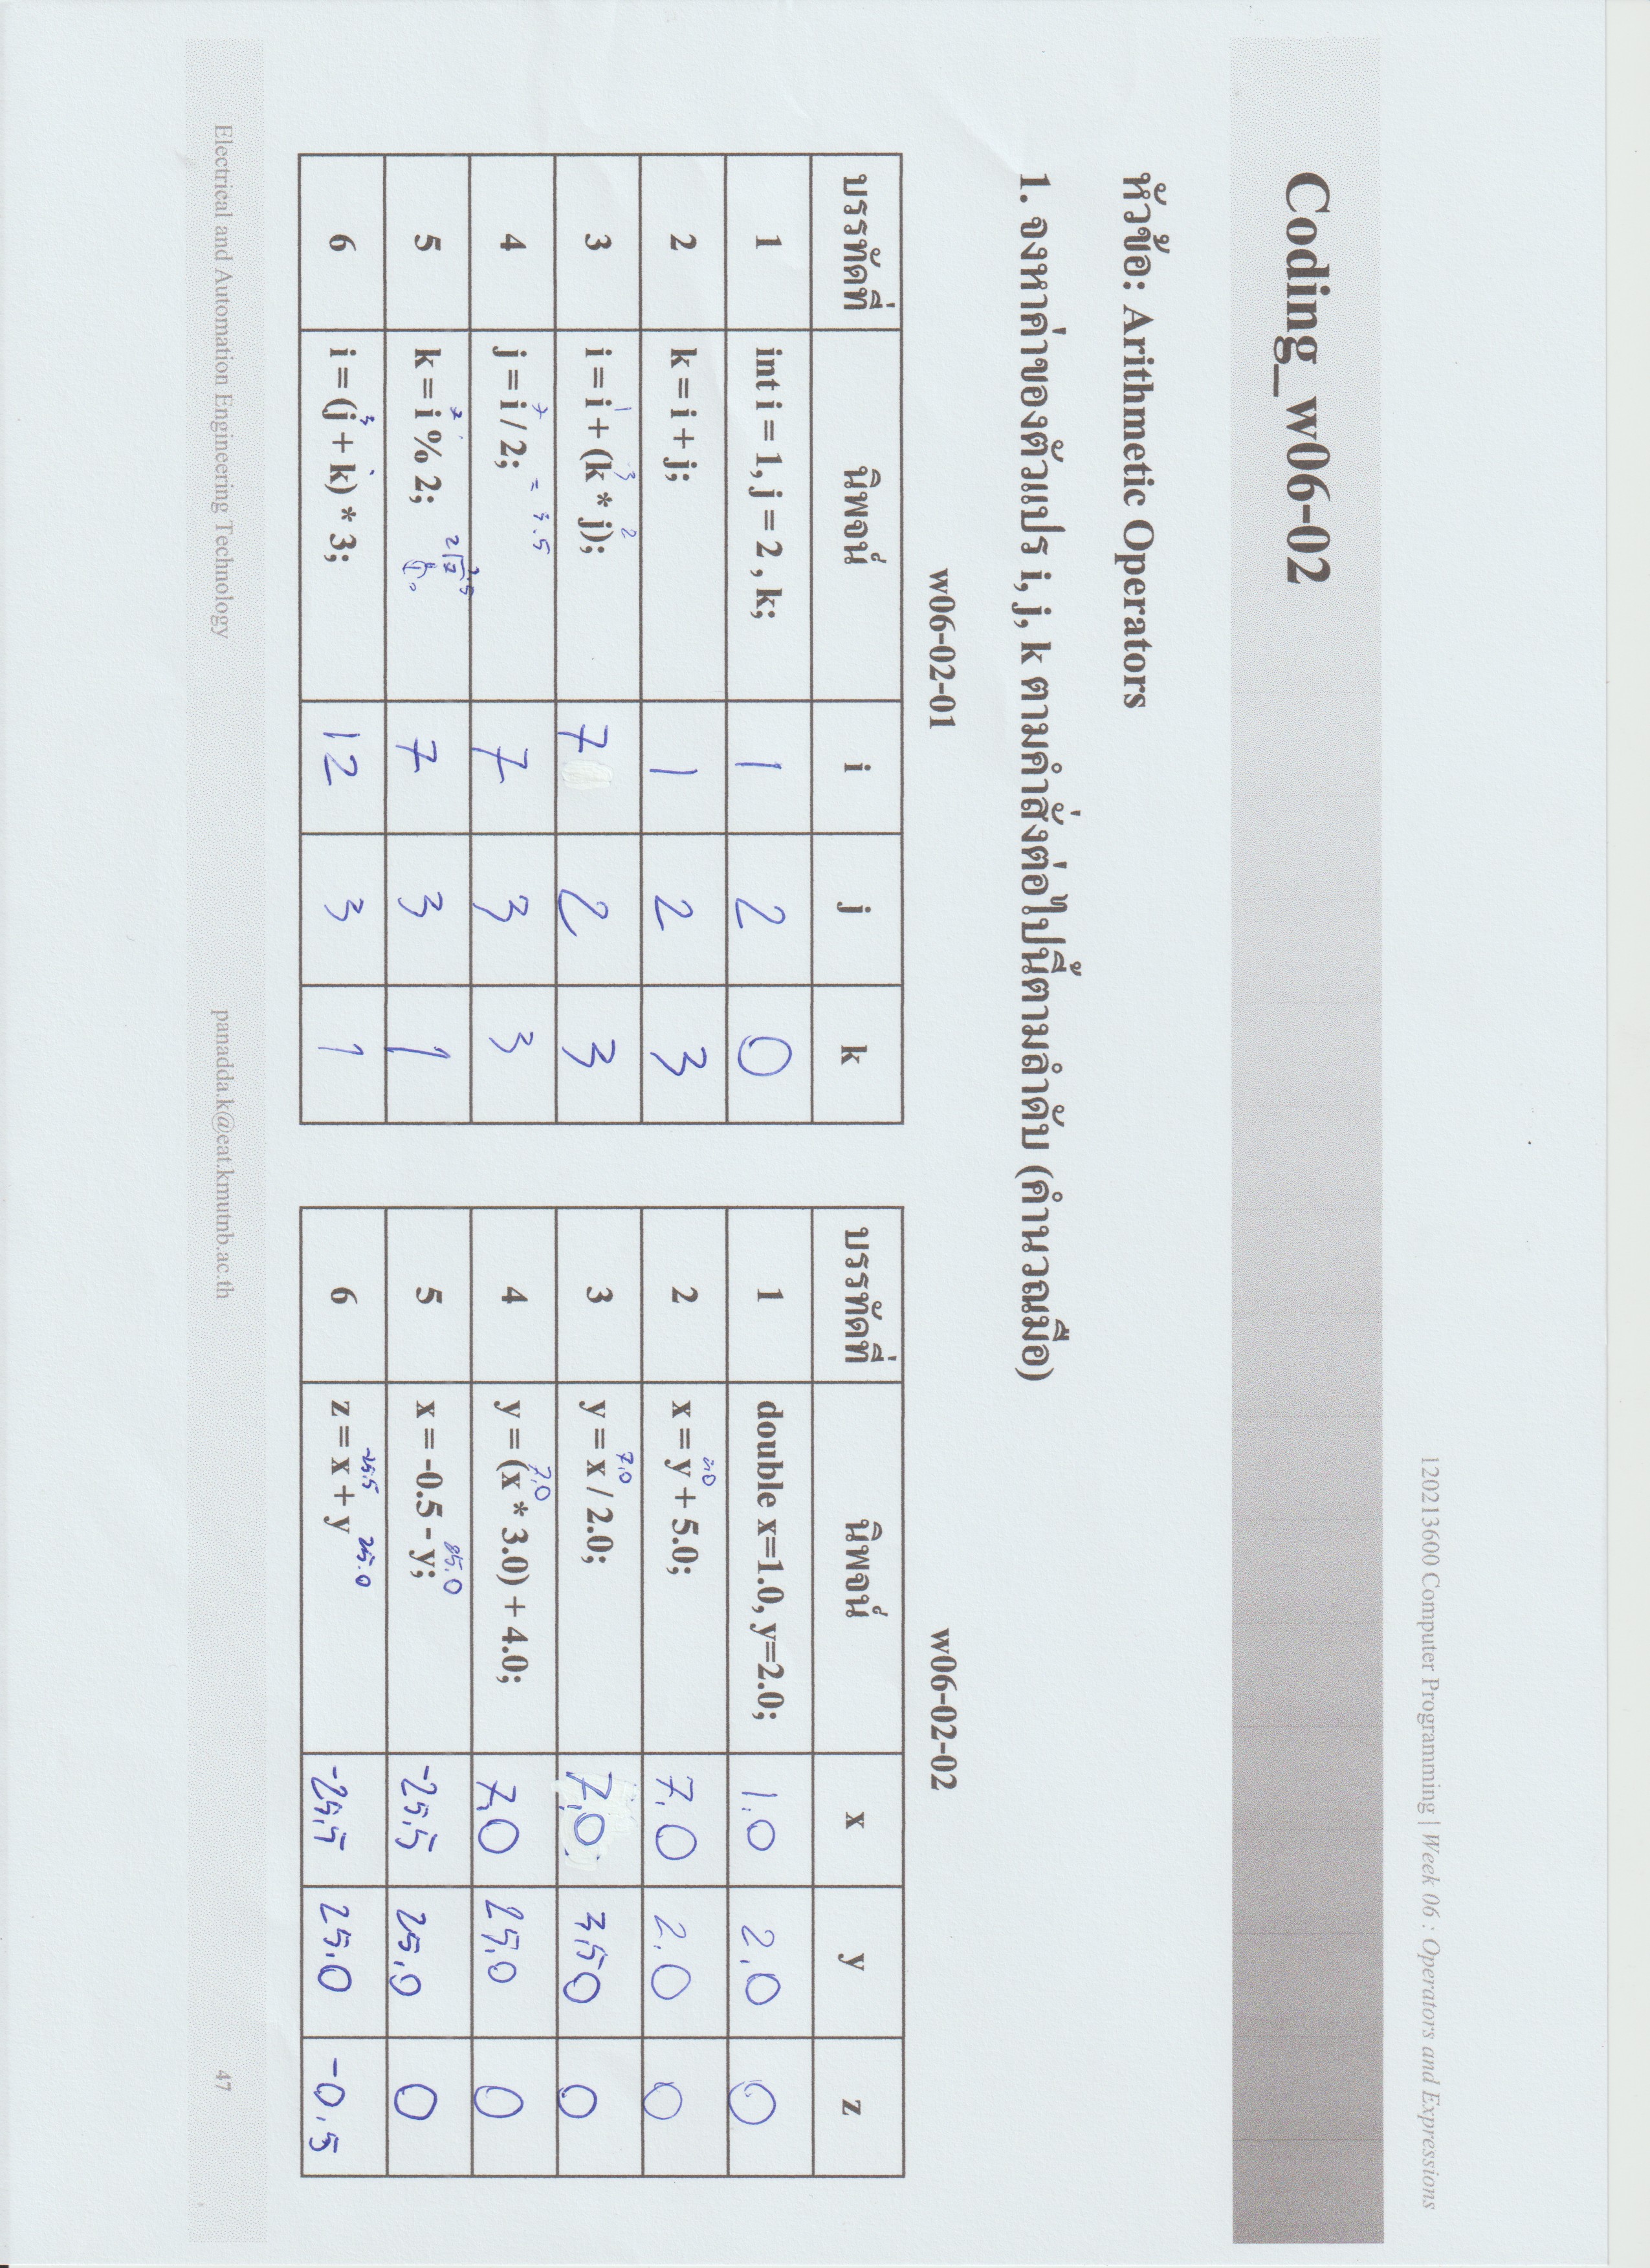 120213600 Computer Programming | Week 06 : Operators and Expressions
Coding_w06-02
หัวข้อ: Arithmetic Operators
1. จงหาค่าของตัวแปร i, j, k ตามคำสั่งต่อไปนี้ตามลำดับ (คำนวณมือ)
w06-02-01
บรรทัดที่ นิพจน์ i j k
1 int i = 1, j = 2 , k; 1 2 0
2 k = i + j; 1 2 3
1 3 2
3 i = i + (k * j); 7 2 3
7 = 3.5
4 j = i / 2; 7 3 3
7
5 k = i % 2; 7 3 1
3
6 i = (j + k) * 3; 12 3 1
w06-02-02
บรรทัดที่ นิพจน์ x y z
1 double x=1.0, y=2.0; 1.0 2.0 0
2.0
2 x = y + 5.0; 7.0 2.0 0
7.0
3 y = x / 2.0; 7.0 3.50 0
7.0
4 y = (x * 3.0) + 4.0; 7.0 25.0 0
25.0
5 x = -0.5 - y; -25.5 25.0 0
-25.5 25.0
6 z = x + y -25.5 25.0 -0.5
Electrical and Automation Engineering Technology panadda.k@eat.kmutnb.ac.th 47